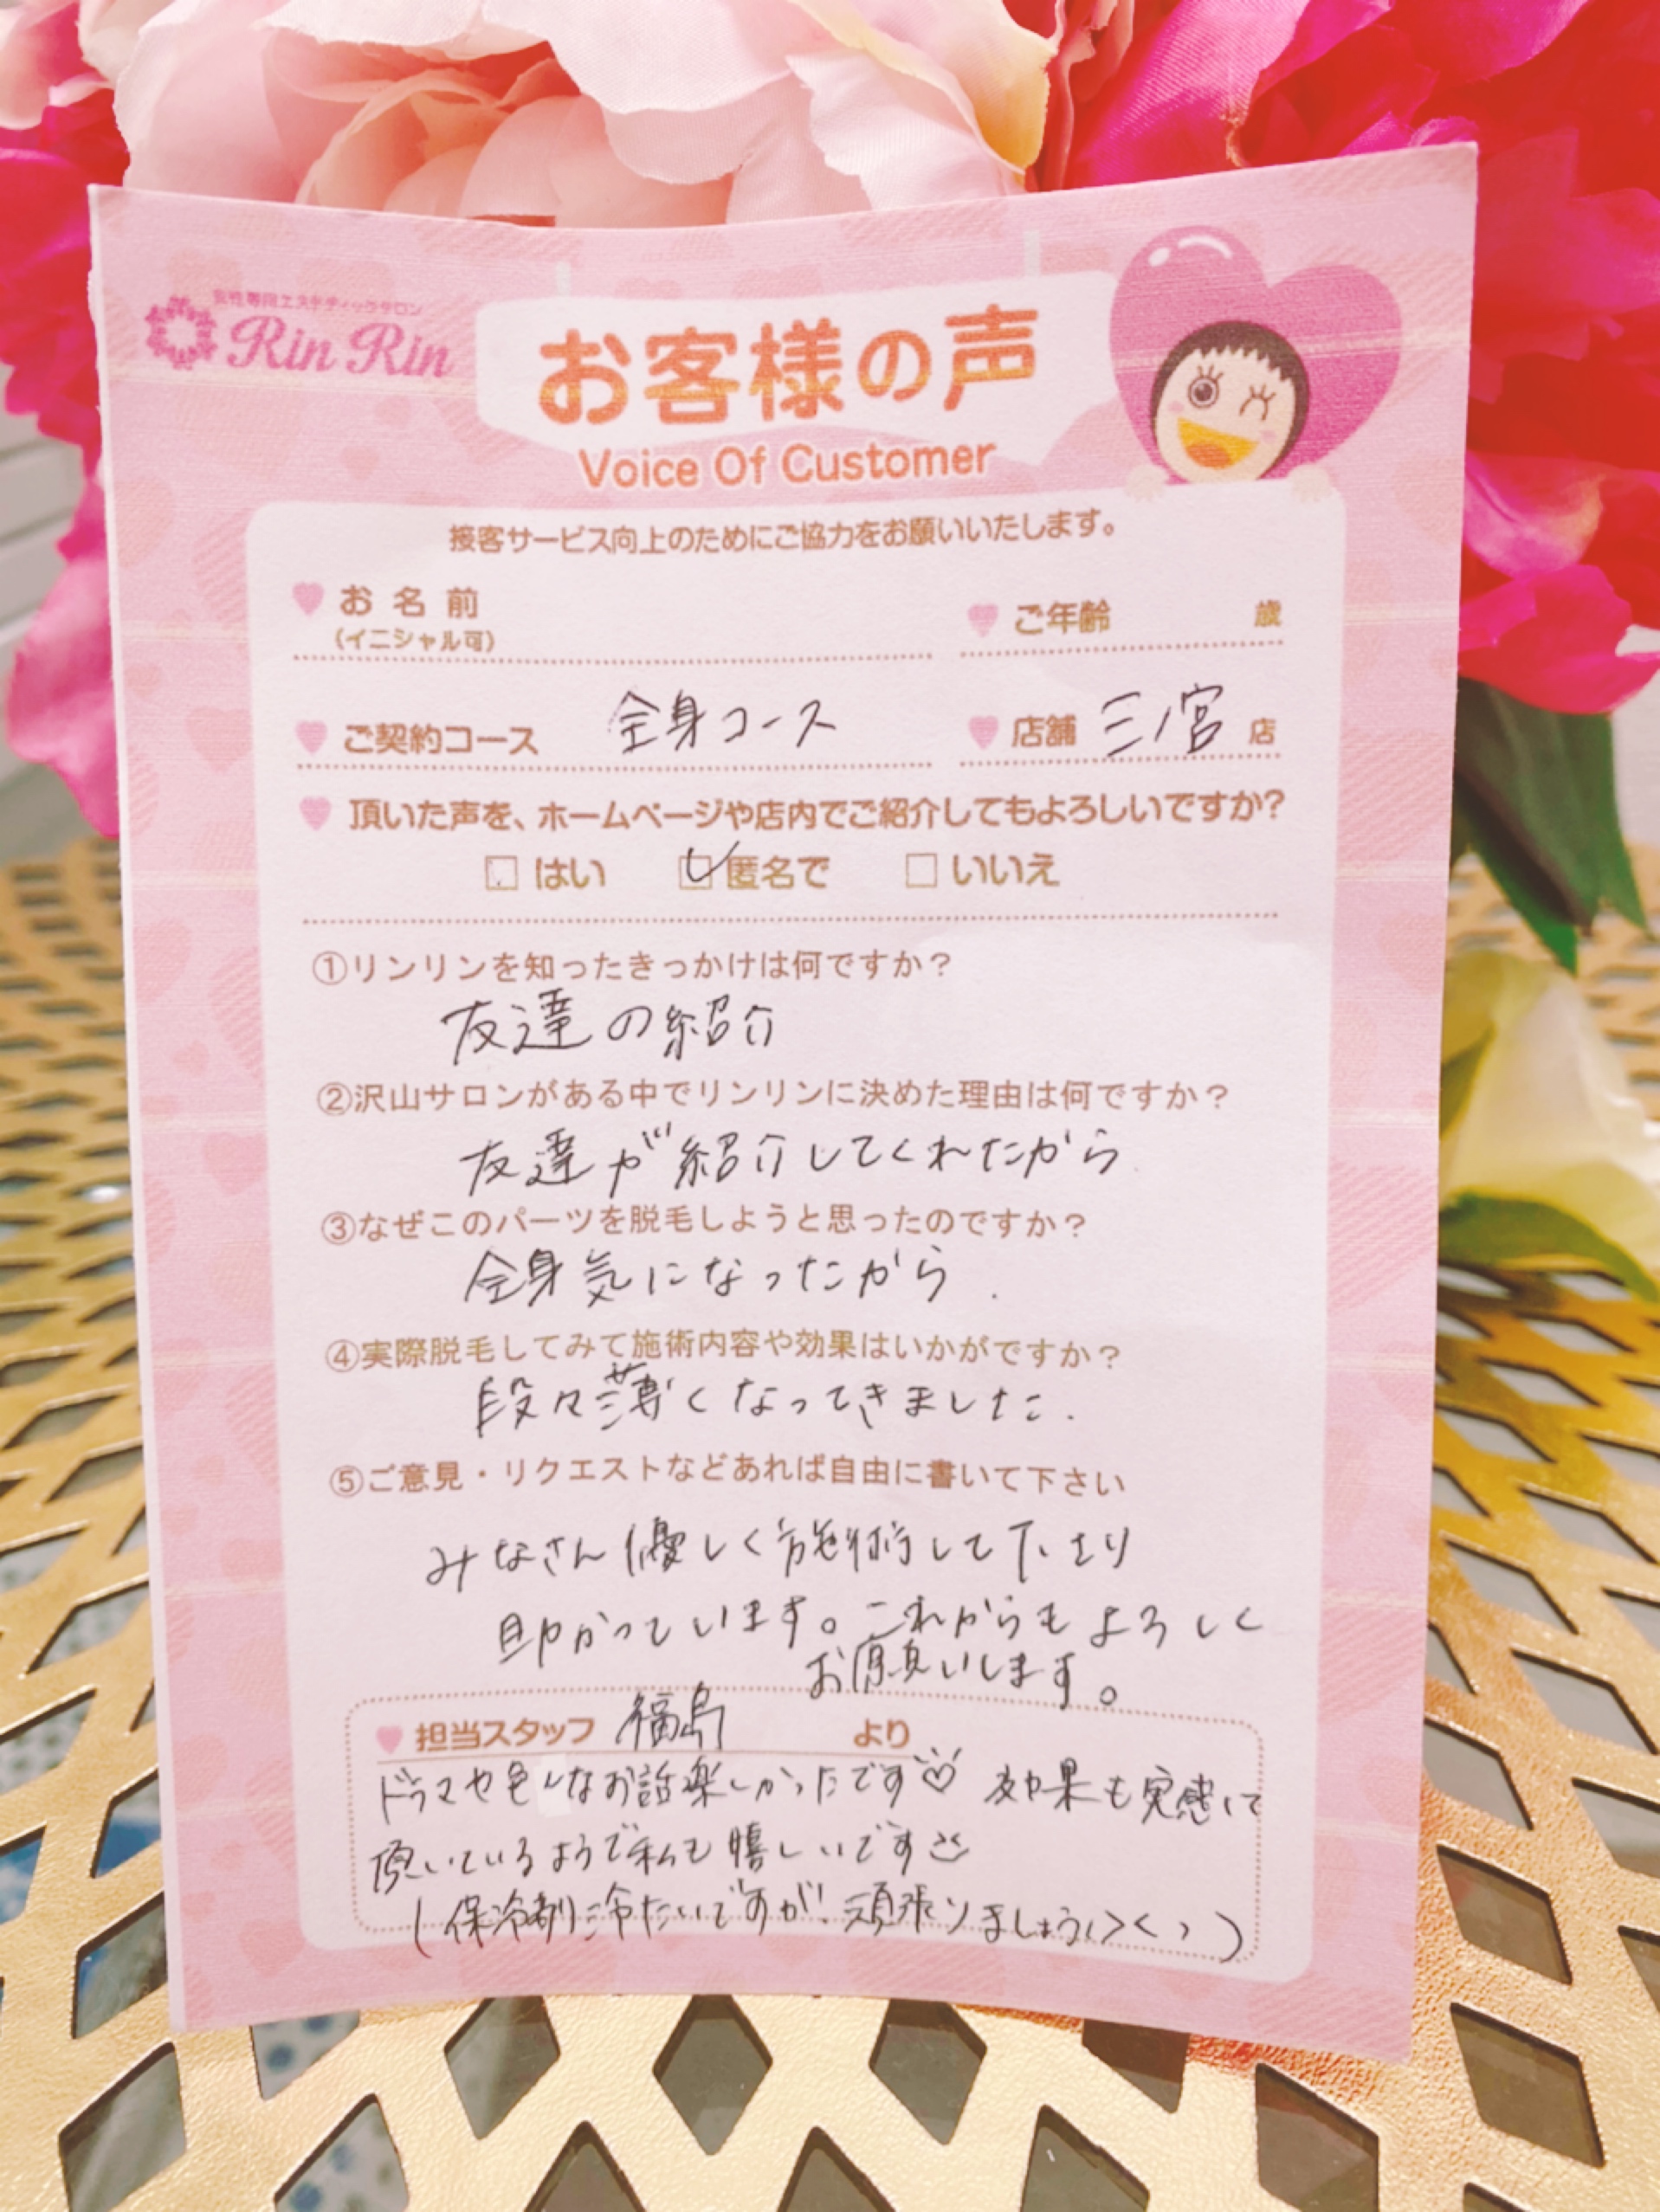 女性専用エステティックサロン
Rin Rin
お客様の声
Voice Of Customer
接客サービス向上のためにご協力をお願いいたします。
お名前
(イニシャル可)
ご年齢 歳
ご契約コース 全身コース
店舗 三ノ宮 店
頂いた声を、ホームページや店内でご紹介してもよろしいですか?
はい 匿名で いいえ
①リンリンを知ったきっかけは何ですか?
友達の紹介
②沢山サロンがある中でリンリンに決めた理由は何ですか?
友達が紹介してくれたから
③なぜこのパーツを脱毛しようと思ったのですか?
全身気になったから.
④実際脱毛してみて施術内容や効果はいかがですか?
段々薄くなってきました.
⑤ご意見・リクエストなどあれば自由に書いて下さい
みなさん優しく施術して下さり
助かっています。これからもよろしく
お願いします。
担当スタッフ 福島 より
ドラマや色んなお話楽しかったです♡ 効果も実感して
頂いているようで私も嬉しいです
(保冷剤冷たいですが、頑張りましょう(>く、)